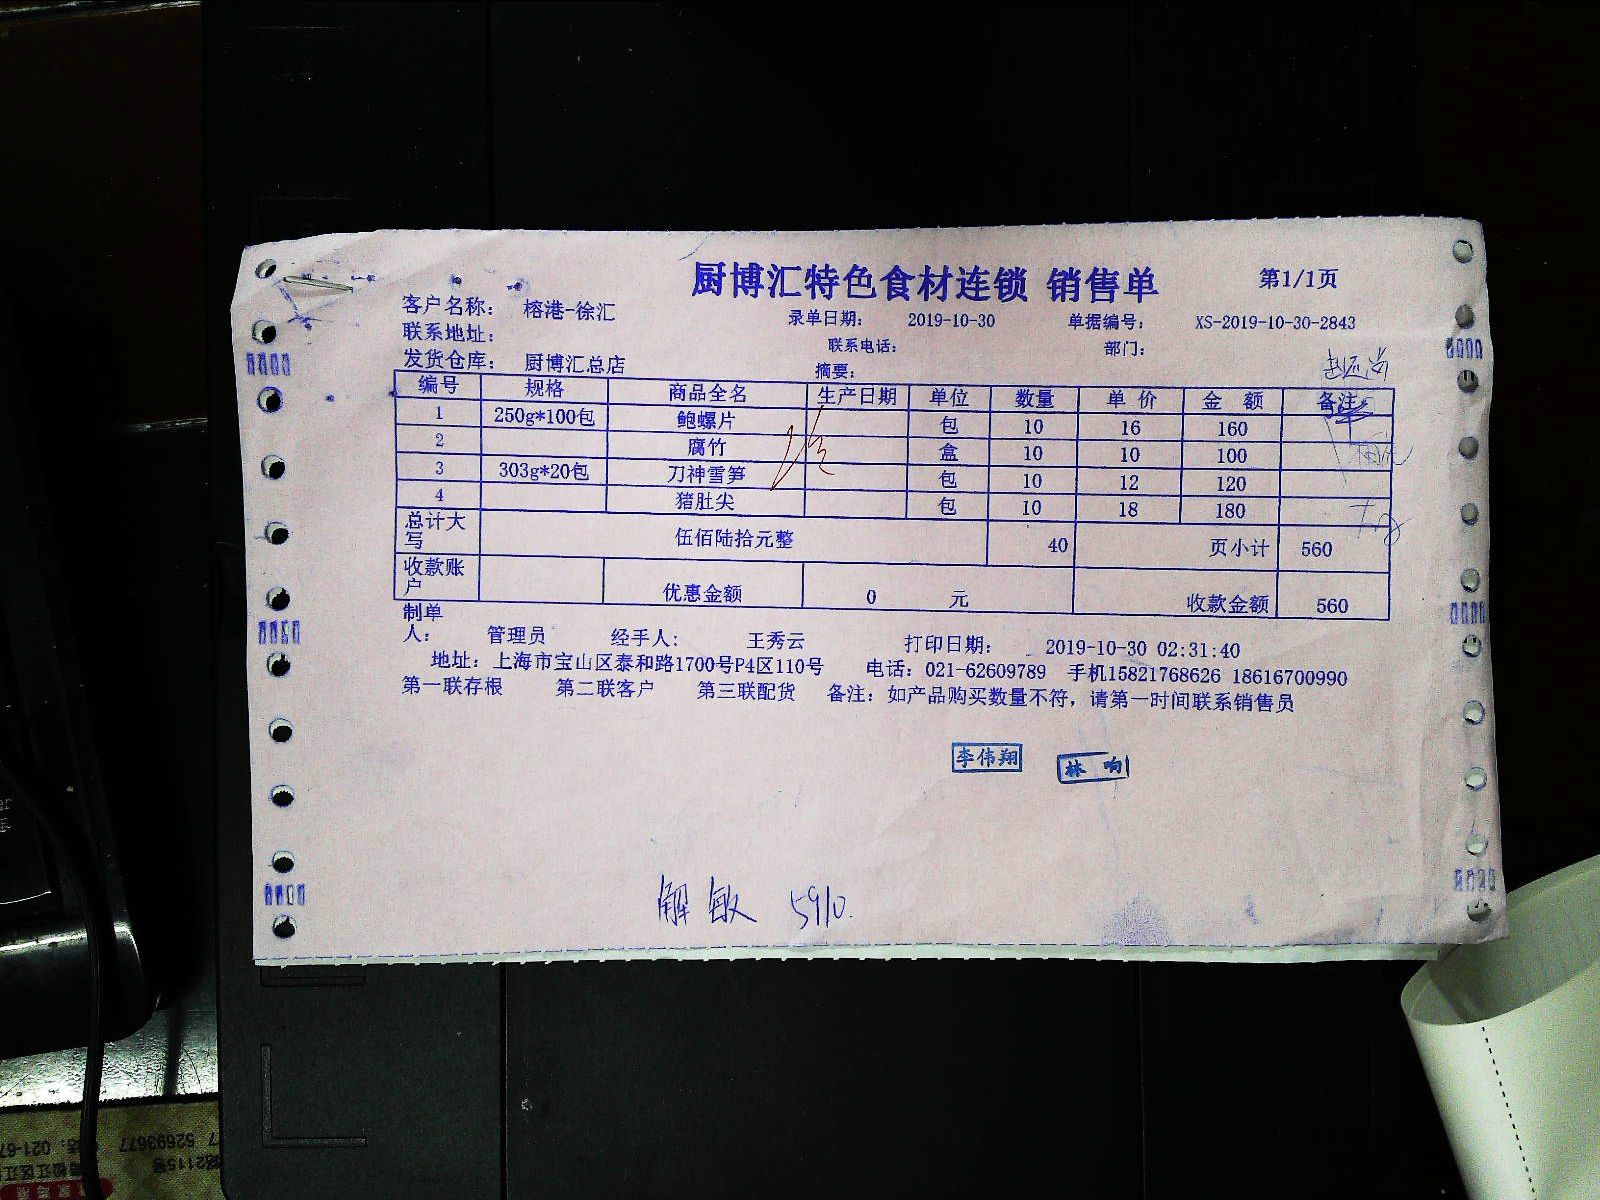 厨博汇特色食材连锁 销售单 第1/1页
客户名称： 榕港-徐汇 录单日期： 2019-10-30 单据编号： XS-2019-10-30-2843
联系地址： 联系电话： 部门：
发货仓库： 厨博汇总店 摘要：
编号 规格 商品全名 生产日期 单位 数量 单价 金额 备注
1 250g*100包 鲍螺片 包 10 16 160
2 腐竹 盒 10 10 100
3 303g*20包 刀神雪笋 包 10 12 120
4 猪肚尖 包 10 18 180
总计大写 伍佰陆拾元整 40 页小计 560
收款账户 优惠金额 0 元 收款金额 560
制单人： 管理员 经手人： 王秀云 打印日期： 2019-10-30 02:31:40
地址：上海市宝山区泰和路1700号P4区110号 电话：021-62609789 手机15821768626 18616700990
第一联存根 第二联客户 第三联配货 备注：如产品购买数量不符，请第一时间联系销售员
李伟翔 林响
解敏 5910.
52693677